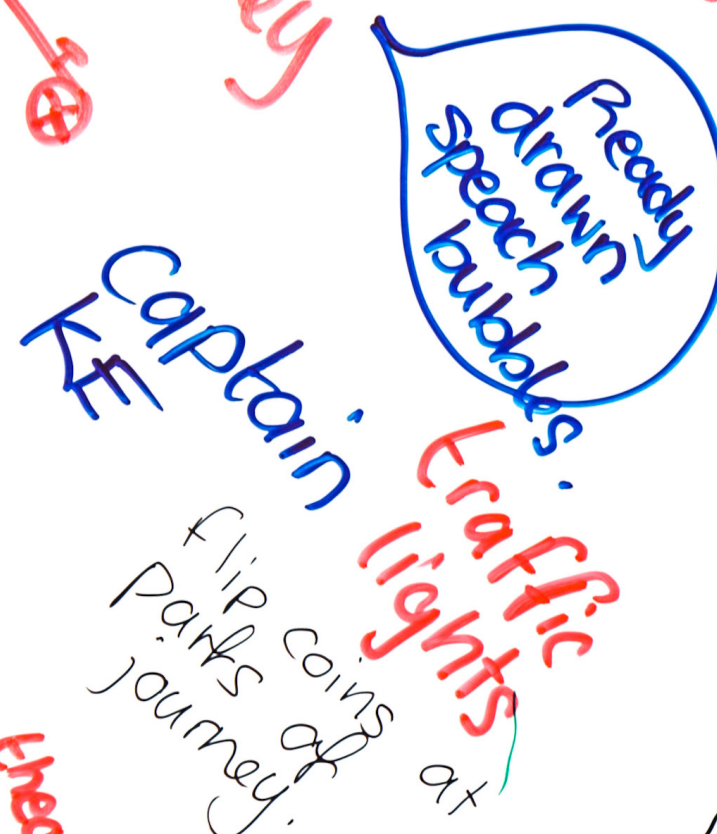 ey
Ready
drawn
speach
bubbles.
Captain
traffic
lights
flip coins at
parts of
journey.
thea